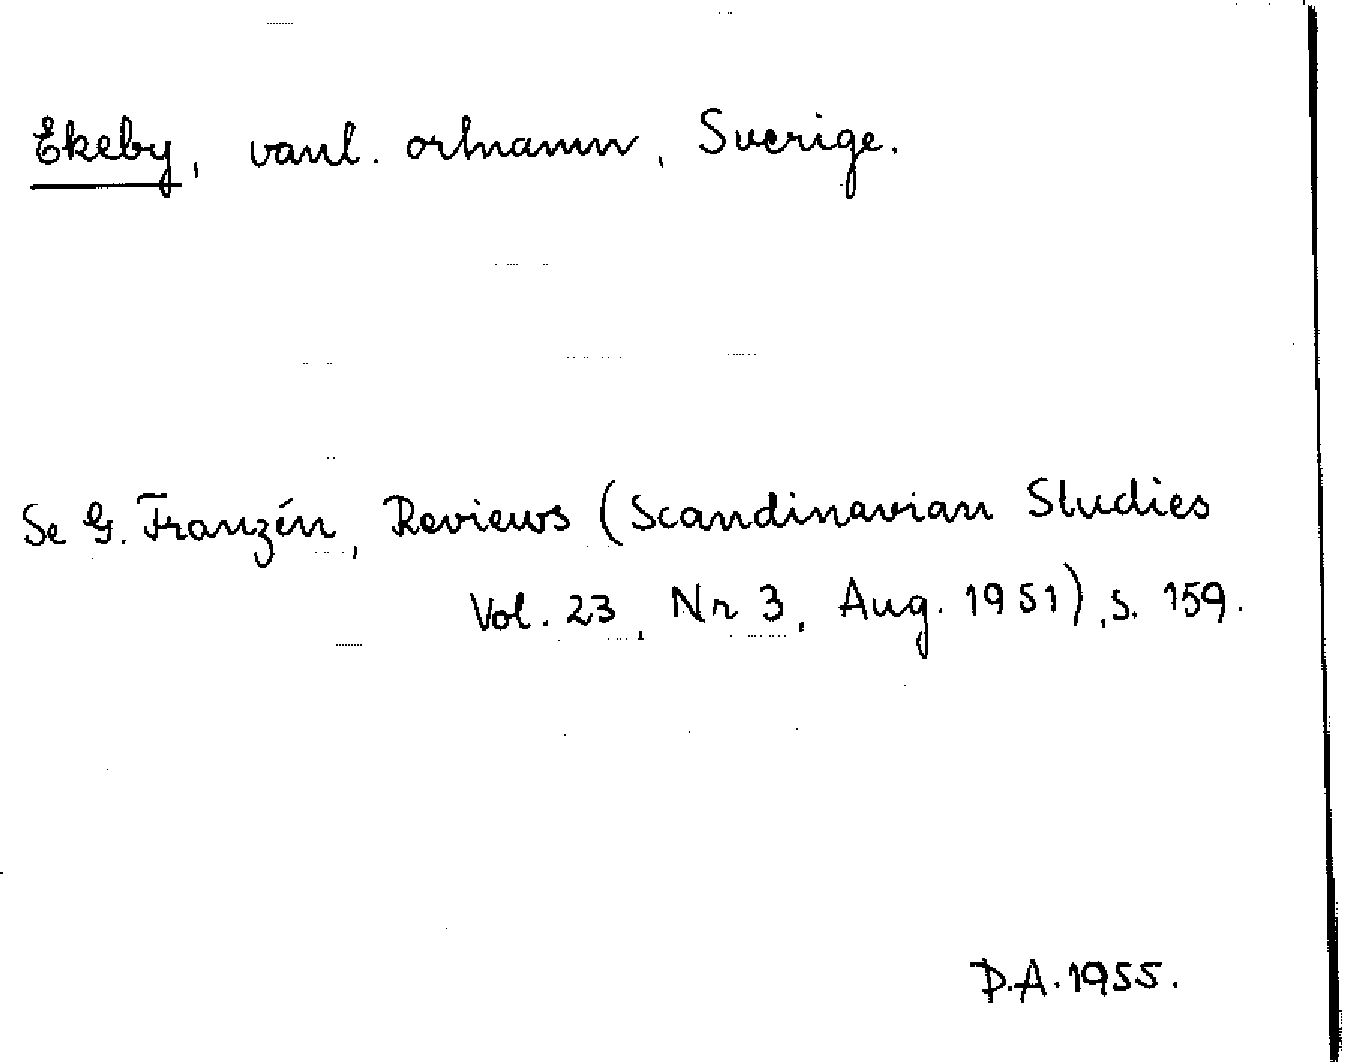 Ekeby, vanl. ortnamn, Sverige.
Se G. Franzén, Reviews (Scandinavian Studies
Vol. 23, Nr 3, Aug. 1951), s. 159.
D.A. 1955.